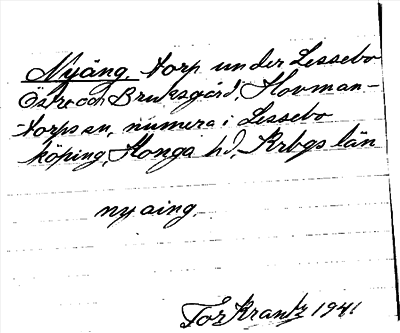 Nyäng, torp under Lessebo
Östre och Bruksgård, Hovman-
torps sn, numera i Lessebo
köping, Konga hd, Krbgs län
nyaing.
Tor Krantz 1941